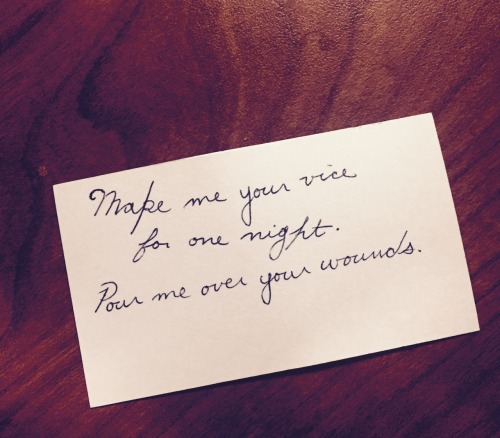 Make me your vice
for one night.
Pour me over your wounds.